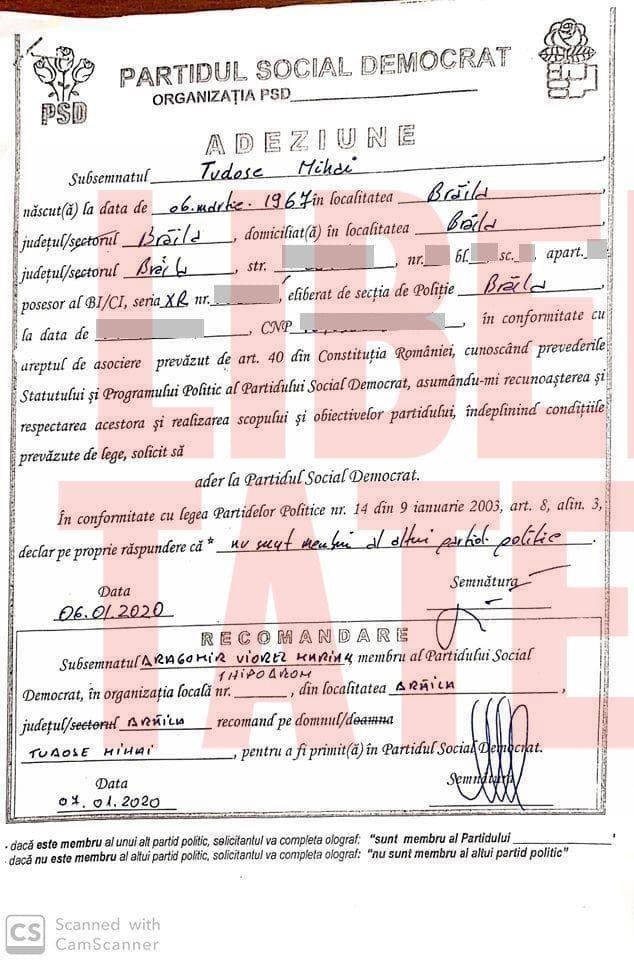 PSD
PARTIDUL SOCIAL DEMOCRAT
ORGANIZAŢIA PSD
ADEZIUNE
Subsemnatul Tudose Mihai
născut(ă) la data de 06.martie.1967 în localitatea Brăila
judeţul/sectorul Brăila, domiciliat(ă) în localitatea Brăila
judeţul/sectorul Brăila, str. nr. bl. sc. , apart.
posesor al BI/CI, seria XR nr. , eliberat de secţia de Poliţie Brăila
la data de , CNP , în conformitate cu
areptul de asociere prevăzut de art. 40 din Constituţia României, cunoscând prevederile
Statutului şi Programului Politic al Partidului Social Democrat, asumându-mi recunoaşterea şi
respectarea acestora şi realizarea scopului şi obiectivelor partidului, îndeplinind condiţiile
prevăzute de lege, solicit să
ader la Partidul Social Democrat.
În conformitate cu legea Partidelor Politice nr. 14 din 9 ianuarie 2003, art. 8, alin. 3,
declar pe proprie răspundere că * nu sunt membru al altui partid politic.
Data
Semnătura
06.01.2020
RECOMANDARE
Subsemnatul DRAGOMIR VIOREL MARIAN membru al Partidului Social
1 HIPODROM
Democrat, în organizaţia locală nr. , din localitatea BRĂILA,
judeţul/sectorul BRĂILA recomand pe domnul/doamna
TUDOSE MIHAI, pentru a fi primit(ă) în Partidul Social Democrat.
Data
Semnătura
07.01.2020
- dacă este membru al unui alt partid politic, solicitantul va completa olograf: "sunt membru al Partidului "
- dacă nu este membru al altui partid politic, solicitantul va completa olograf: "nu sunt membru al altui partid politic"
LIBERTATE
CS Scanned with
CamScanner